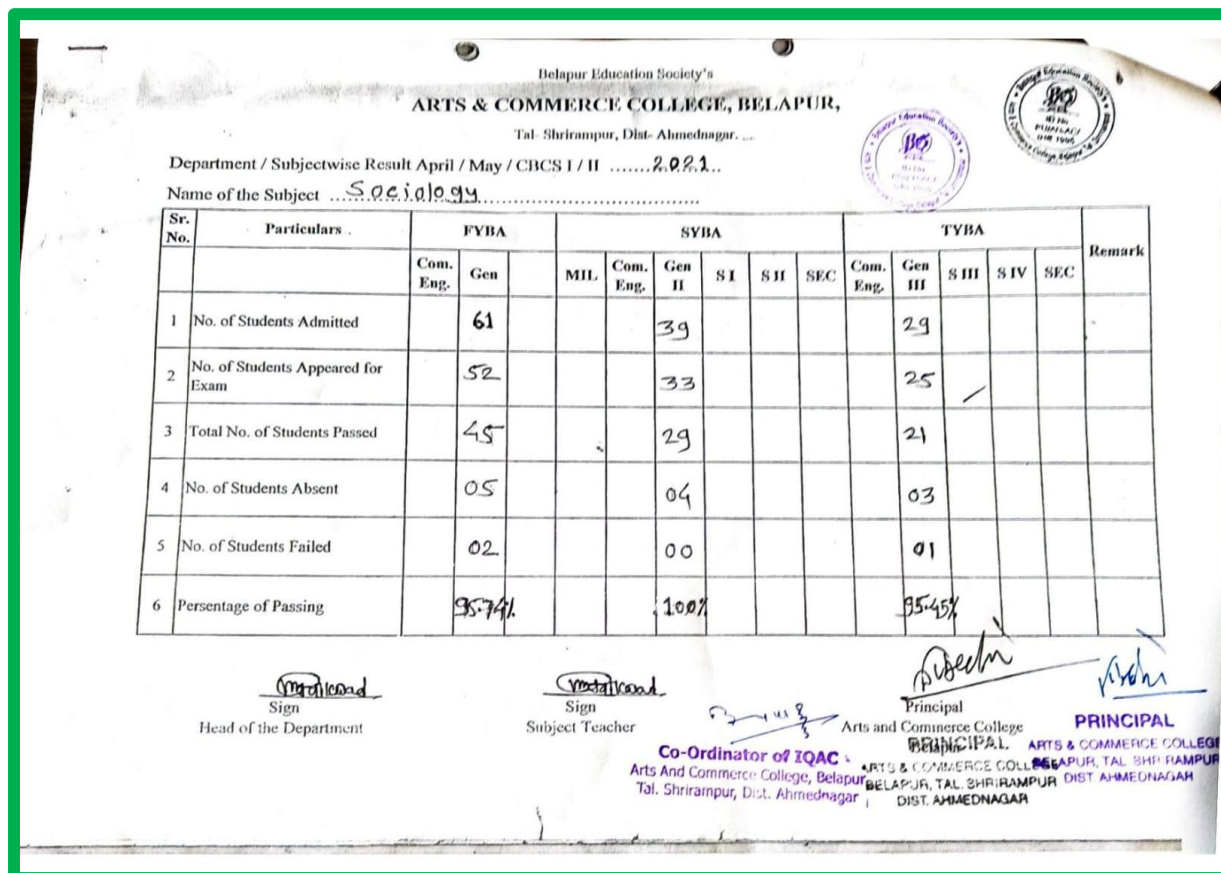 Belapur Education Society's
ARTS & COMMERCE COLLEGE, BELAPUR,
Tal- Shrirampur, Dist- Ahmednagar. ...
Department / Subjectwise Result April / May / CBCS I / II .......2021..
Name of the Subject ...Sociology...
Sr. No. Particulars . FYBA SYBA TYBA Remark
Com. Eng. Gen MIL Com. Eng. Gen II S I S II SEC Com. Eng. Gen III S III S IV SEC
1 No. of Students Admitted 61 39 29
2 No. of Students Appeared for Exam 52 33 25
3 Total No. of Students Passed 45 29 21
4 No. of Students Absent 05 04 03
5 No. of Students Failed 02 00 01
6 Persentage of Passing 95.74% 100% 95.45%
Sign
Head of the Department
Sign
Subject Teacher
Principal
Arts and Commerce College
Belapur
Co-Ordinator of IQAC
Arts And Commerce College, Belapur
Tal. Shrirampur, Dist. Ahmednagar
PRINCIPAL
ARTS & COMMERCE COLLEGE
BELAPUR, TAL. SHRIRAMPUR
DIST. AHMEDNAGAR
PRINCIPAL
ARTS & COMMERCE COLLEGE
BELAPUR, TAL SHRIRAMPUR
DIST AHMEDNAGAR